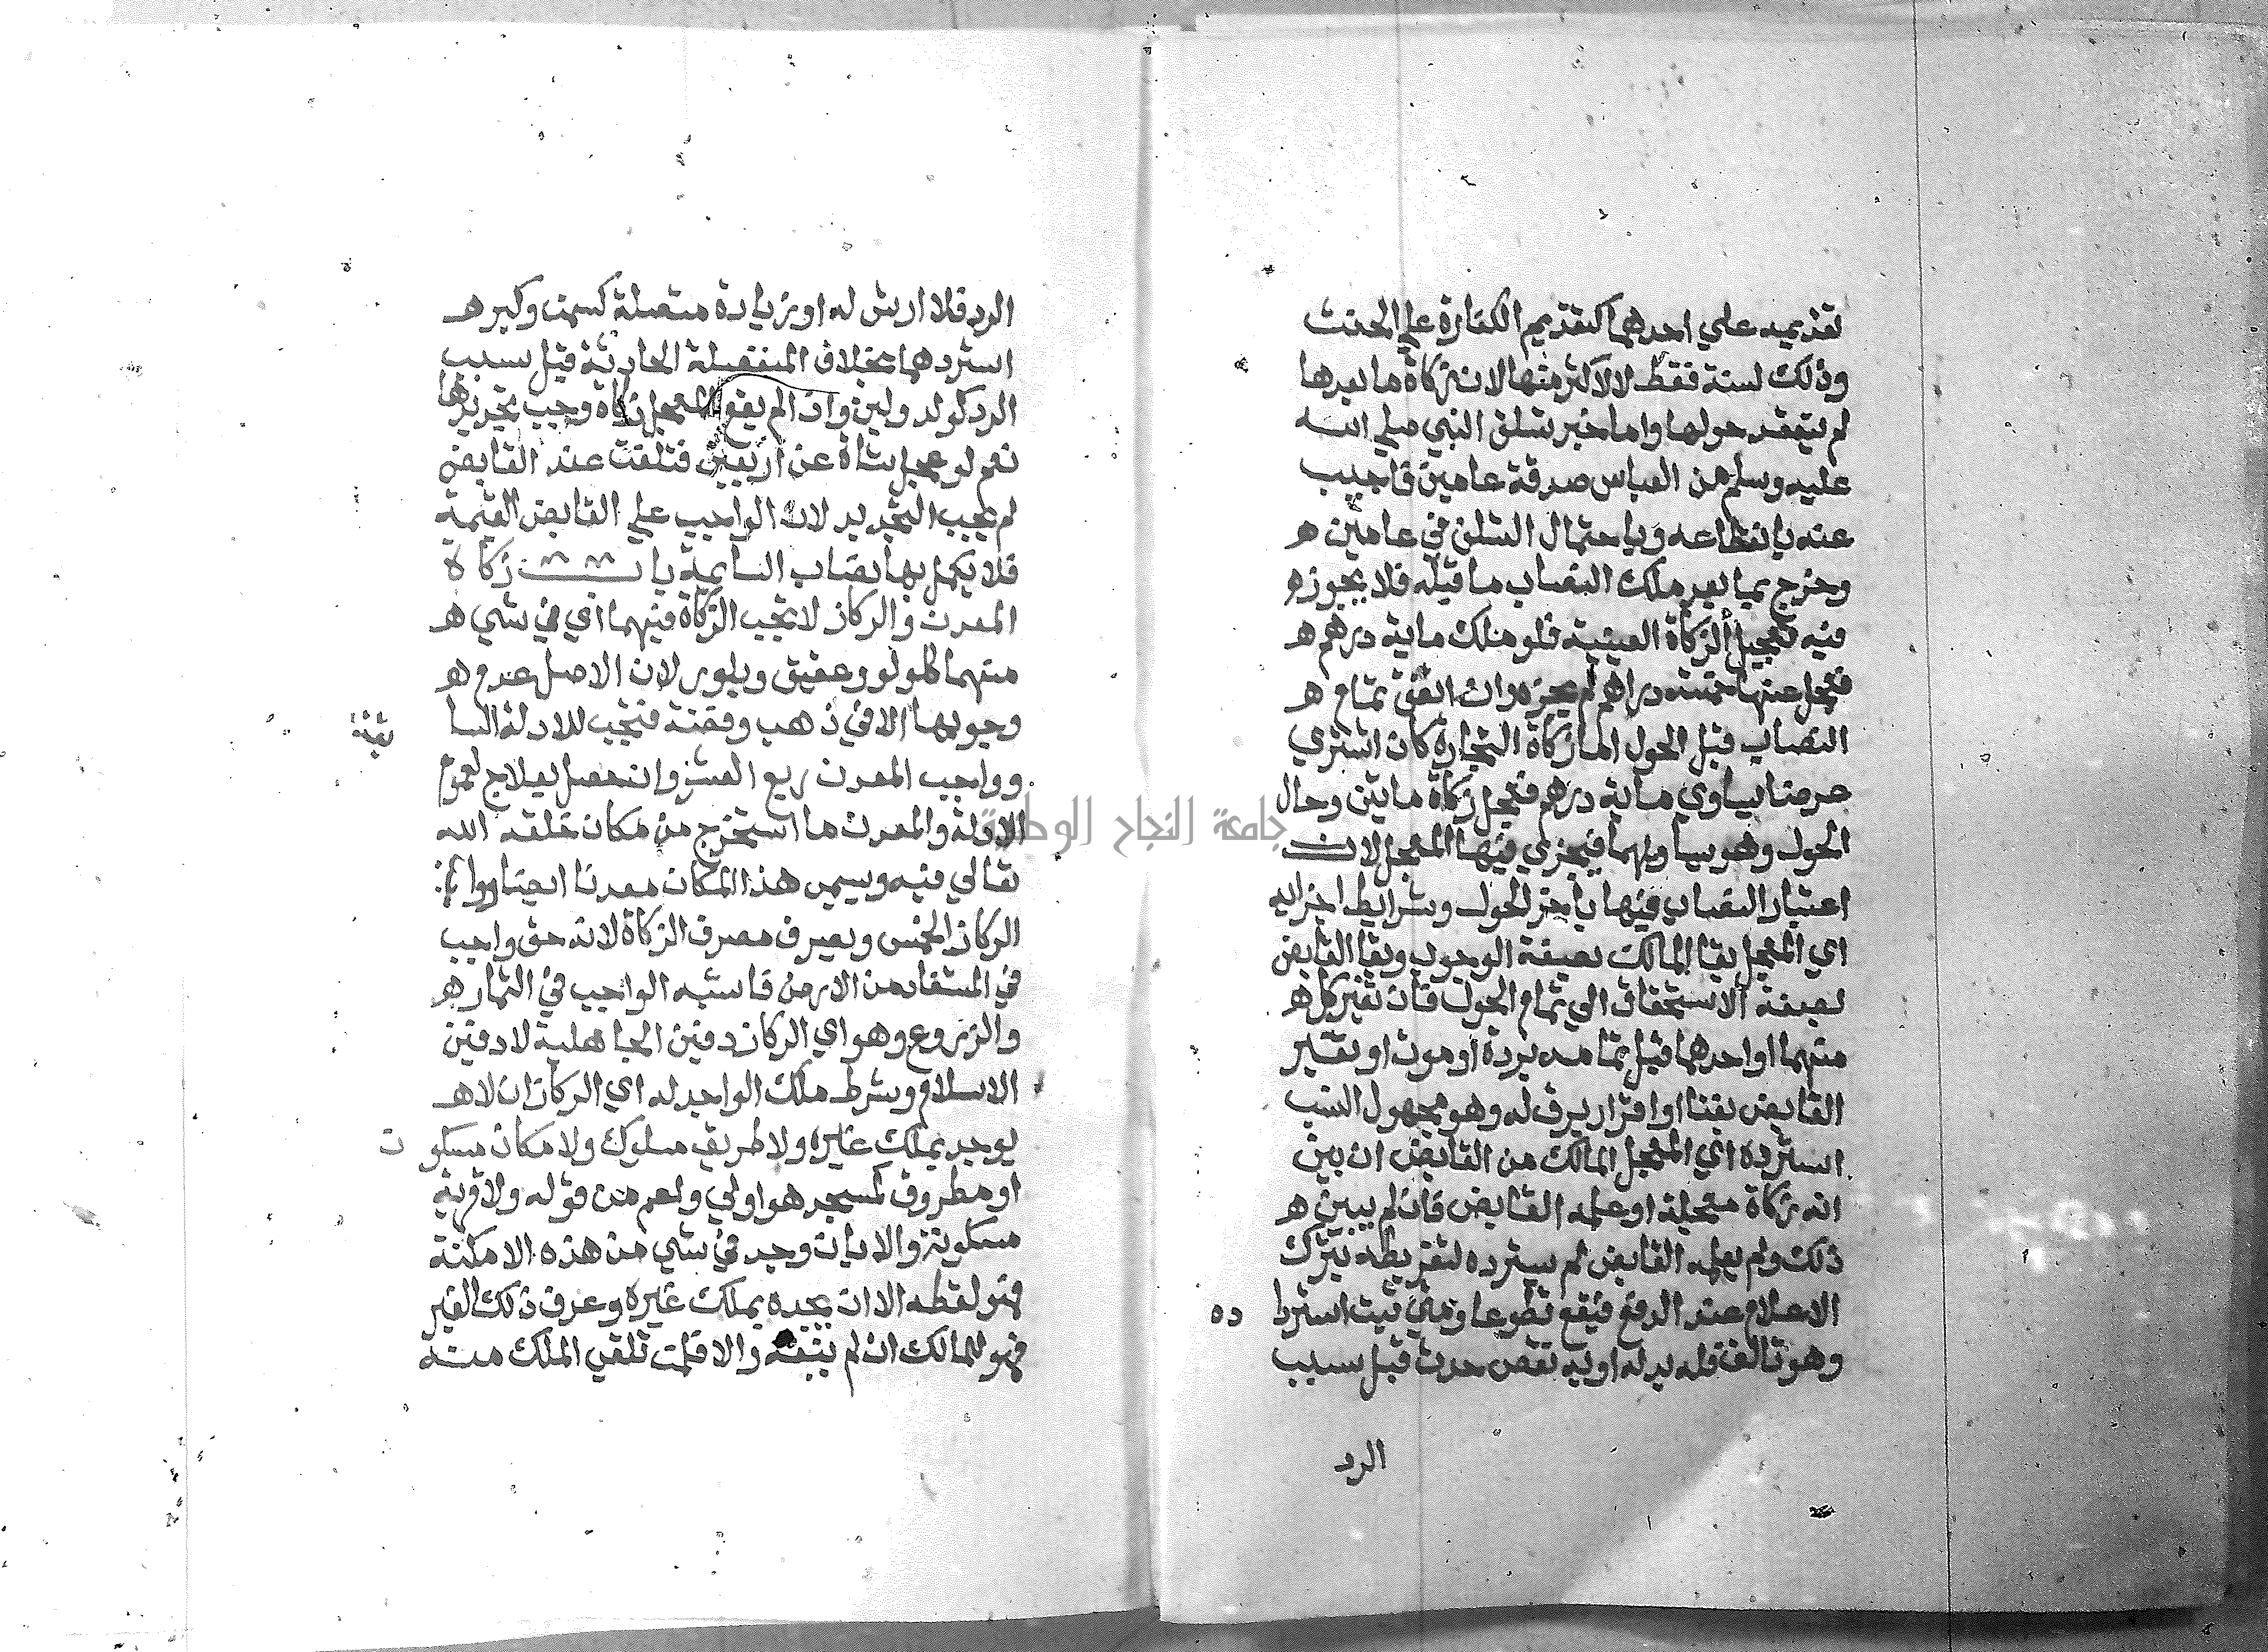 تقديمه علي احدهما كتقديم الكفارة علي الحنث
وذلك لسنة فقط لا لاكثر منها لان زكاة ما بعدها
لم ينعقد حولها واما خبر تسلف النبي صلي الله
عليه وسلم من العباس صدقة عامين فاجيب
عنه بانقطاعه وباحتمال التسلف في عامين ه
وخرج بما بعد ملك النصاب ما قبله فلا يجوز ه
فيه تعجيل الزكاة العينية فلو ملك ماية درهم ه
فعجل عنها خمسة دراهم لم يجزه وان اتفق تمام ه
النصاب قبل الحول اما زكاة التجارة كان اشتري
عرضا يساوي ماية درهم فعجل زكاة مايتين وحال
الحول وهو يساويهما فيجزي فيها المعجل لان
اعتبار النصاب فيها باخر الحول وشرايط اجزايه
اي المعجل بقا المالك بصفة الوجوب وبقا القابض
بصفة الاستحقاق الي تمام الحول فان تغير كل ه
منهما او احدهما قبل تمامه بردة او موت او بغير
القابض بغنا او اقرار برق له وهو مجهول النسب
استرده اي المعجل المالك من القابض ان بين
انه زكاة معجلة او علمه القابض فان لم يبين ه
ذلك ولم يعلمه القابض لم يسترده لتفريطه بترك
الاعلام عند الدفع فيقع تطوعا ومتي ثبت استردا ده
وهو تالف فله بدله او به نقص حدث قبل سبب
الرد
الرد فلا ارش له او زيادة متصلة كسمن وكبر ه
استردهما بخلاف المنفصلة الحادثة قبل سبب
الرد كولد ولبن واذا لم يقع المعجل زكاة وجب تجديدها
نعم لو عجل شاة عن اربعين فتلفت عند القابض
لم يجب التجديد لان الواجب علي القابض القيمة
فلا يكمل بها نصاب السايمة باب زكاة
المعدن والركاز لا تجب الزكاة فيهما اي في شي ه
منهما كلولو وعقيق وبلور لان الاصل عدم ه
وجوبها الا في ذهب وفضة فتجب للادلة السا بقة
وواجب المعدن ربع العشر وان حصل بعلاج لعموم
الادلة والمعدن ما استخرج من مكان خلقه الله
تعالي فيه ويسمي هذا المكان معدنا ايضا
الركاز الخمس ويصرف مصرف الزكاة لانه حق واجب
في المستفاد من الارض فاشبه الواجب في الثمار ه
والزروع وهو اي الركاز دفين الجاهلية لا دفين
الاسلام وشرط ملك الواجد له اي الركاز ان لا ه
يوجد بملك غيره ولا طريق مسلوك ولا مكان مسكو ن
او مطروق كمسجد هو اولي واعم من قوله ولا قرية
مسكونة والا بان وجد في شي من هذه الامكنة
فهو لقطه الا ان يجده بملك غيره وعرف ذلك الغير
فهو للمالك ان لم ينفه والا فلمن تلقي الملك منه
جامعة النجاح الوطنية